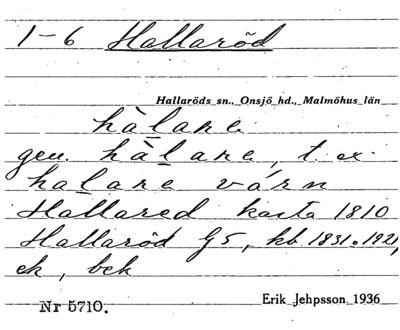 1-6 Hallaröd
Hallaröds sn., Onsjö hd., Malmöhus län
hàlare
gen. hàlare, t. ex.
halare várn
Hallared karta 1810
Hallaröd G5, kb. 1831. 1921,
ek, bek
Nr 5710.
Erik Jehpsson 1936